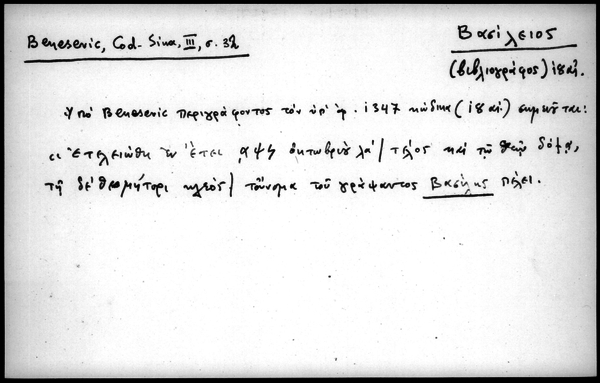 Benesevic, Cod. Sina, III, σ. 32
Βασίλειος
(βιβλιογράφος) ι8 αἰ.
Ὑπὸ Benesevic περιγράφοντος τὸν ὑπ' ἀρ. 1347 κώδικα (ι8 αἰ.) σημειοῦται:
"Ἐτελειώθη ἐν ἔτει αψϟ ὀκτωβρίου λα' / τέλος καὶ τῷ θεῷ δόξα,
τῇ δὲ θεομήτορι κλέος / τοὔνομα τοῦ γράψαντος Βασίλης πέλει.